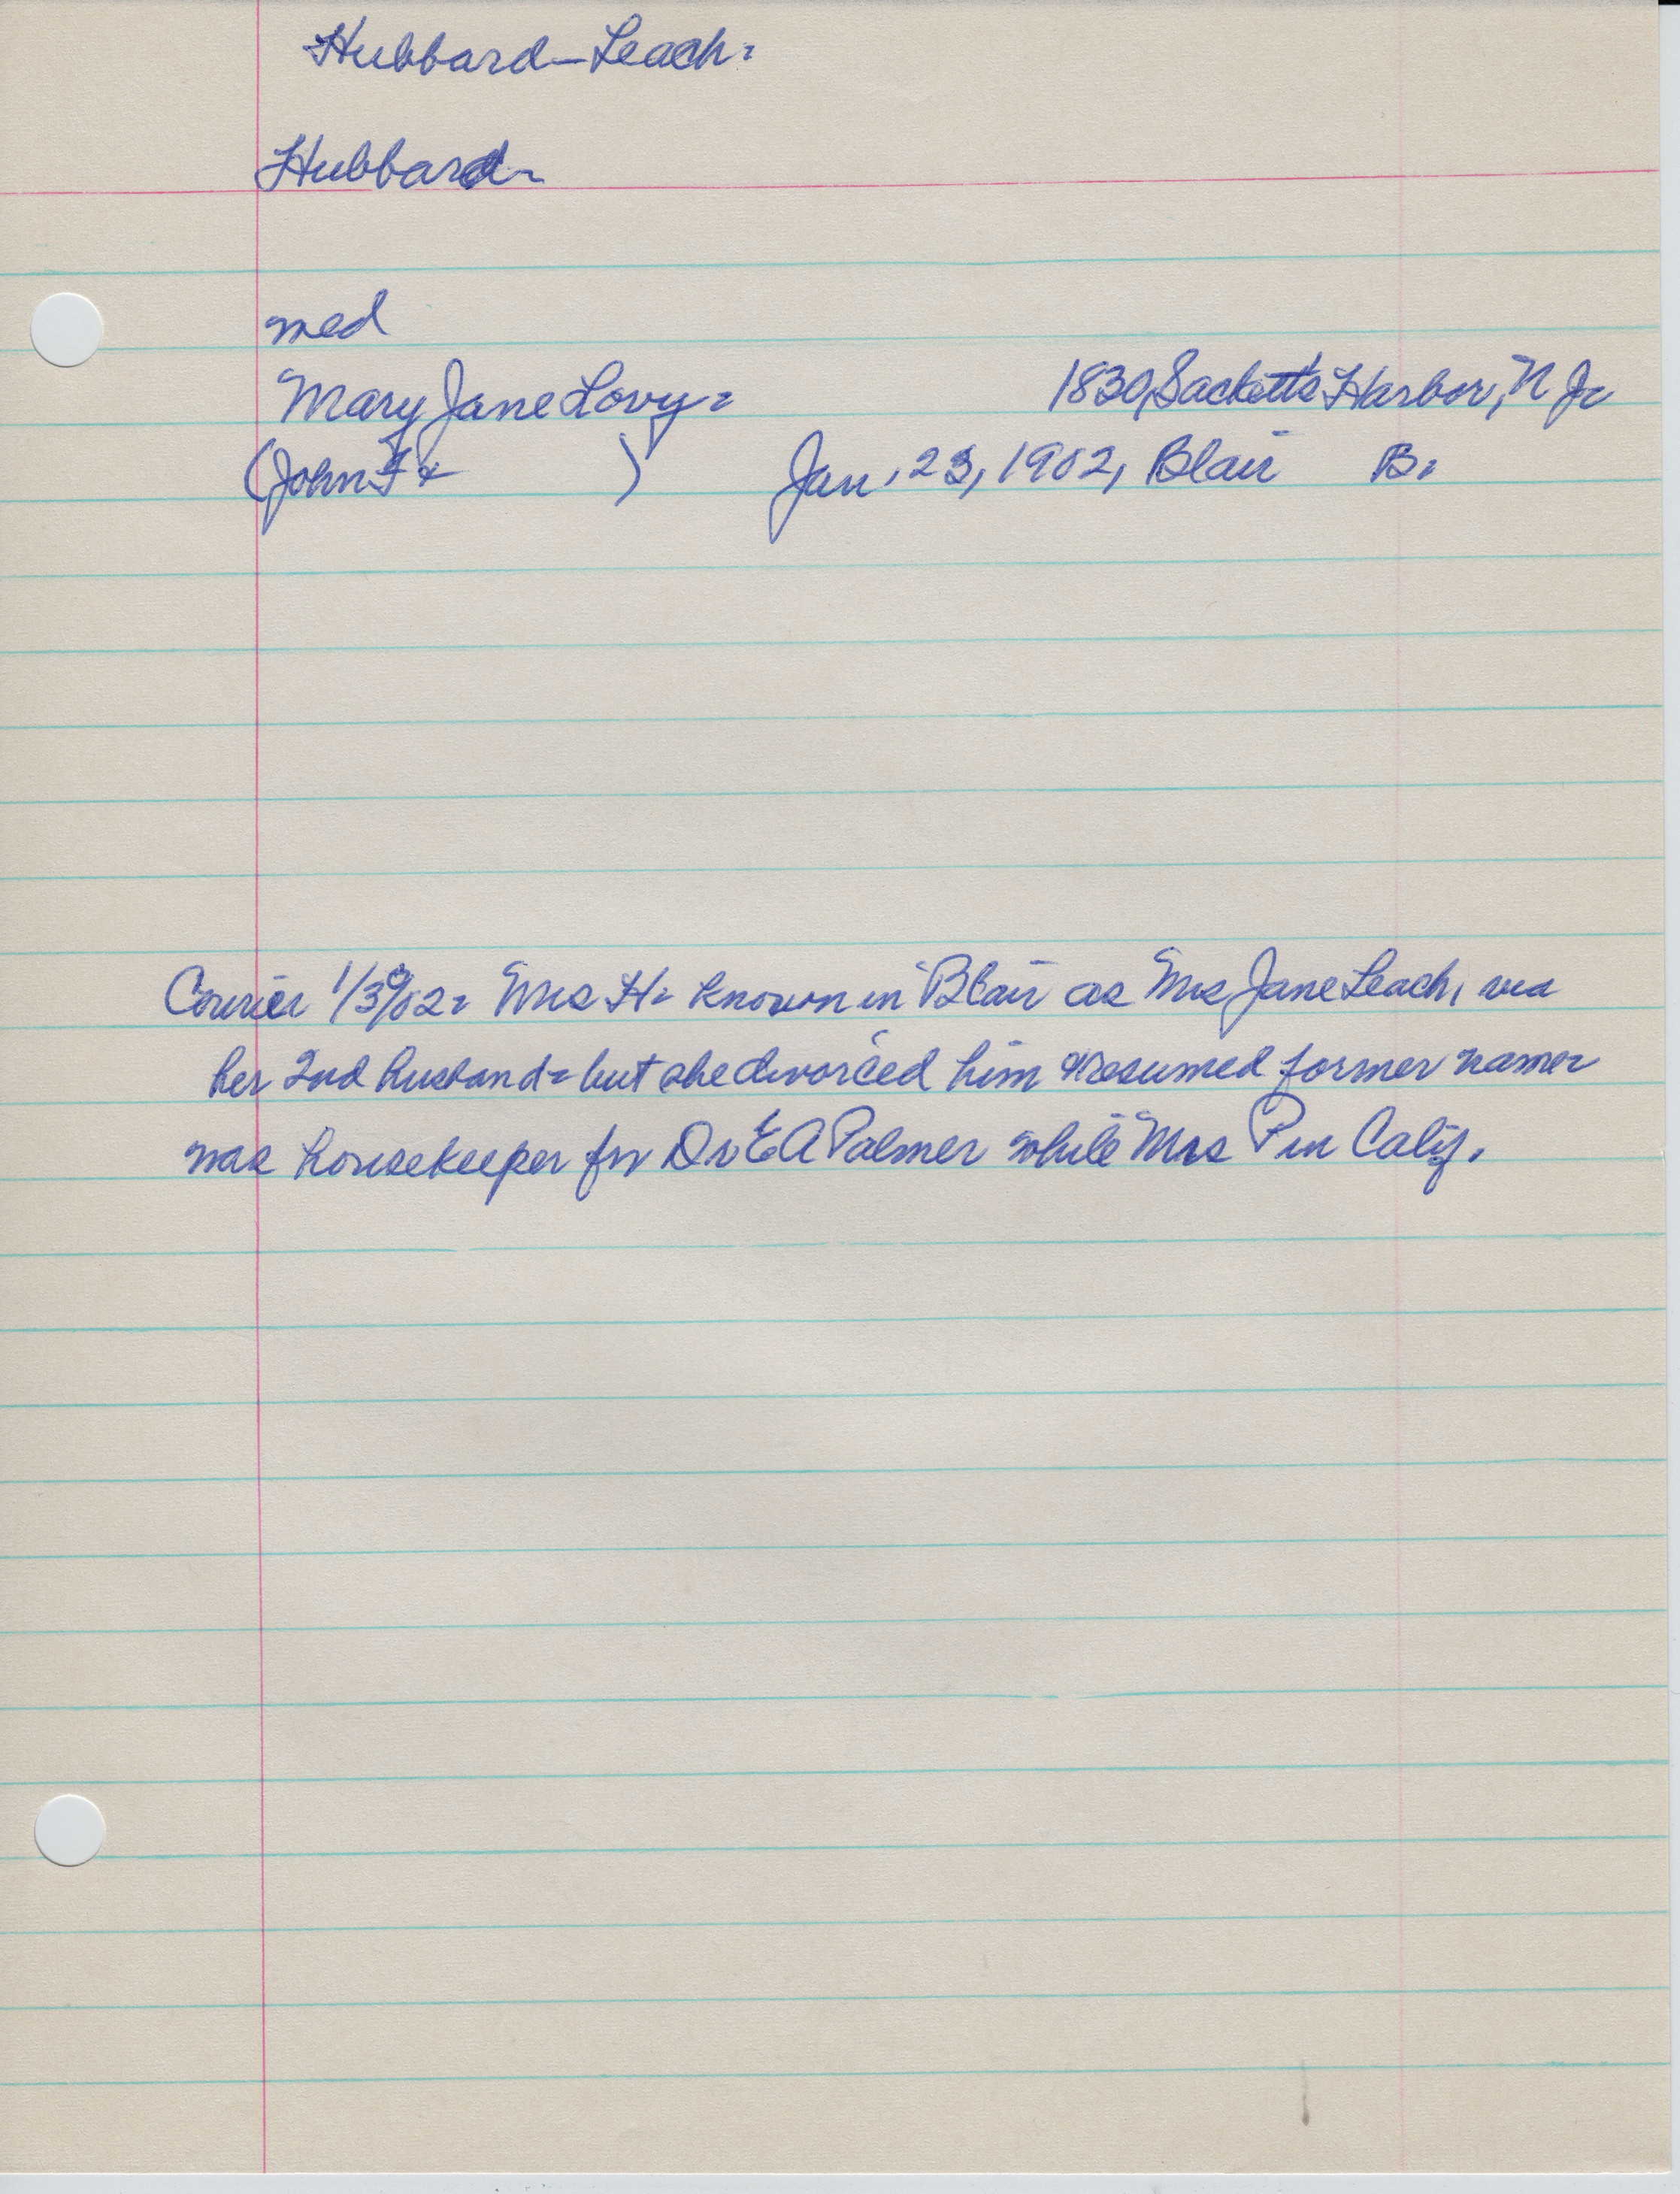 Hubbard-Leach-
Hubbard-
med
Mary Jane Lovy- 1830, Sacketts Harbor, N
(John F & ) Jan. 23, 1902, Blair B.
Courier 1/30/02- Mrs H- known in Blair as Mrs Jane Leach, via
her 2nd husband- but she divorced him & resumed former name-
was housekeeper for Dr E A Palmer while Mrs P in Calif.